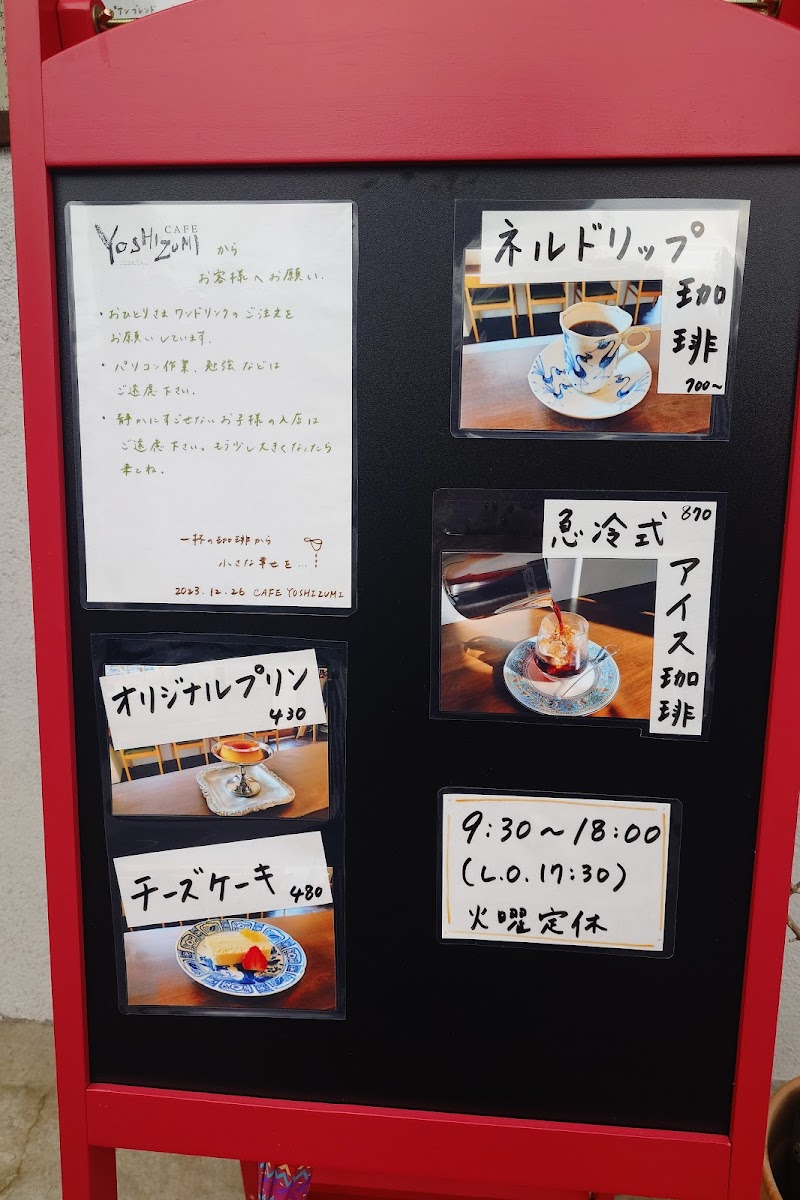 アンブレンド
CAFE
YOSHIZUMI から
お客様へお願い.
・おひとりさまワンドリンクのご注文を
お願いしています.
・パソコン作業、勉強などは
ご遠慮下さい.
・静かにすごせないお子様の入店は
ご遠慮下さい。もう少し大きくなったら
来てね.
一杯の珈琲から
小さな幸せを...
2023.12.26 CAFE YOSHIZUMI
ネルドリップ
珈琲
700~
急冷式
870
アイス珈琲
オリジナルプリン
430
チーズケーキ 480
9:30～18:00
(L.O. 17:30)
火曜定休